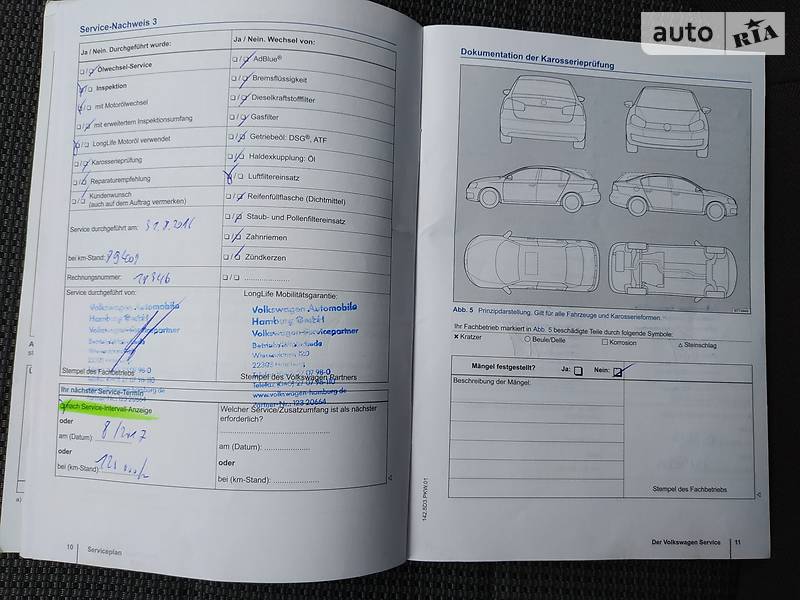 auto RIA
Service-Nachweis 3
Ja / Nein. Durchgeführt wurde:
Ölwechsel-Service
Inspektion
mit Motorölwechsel
mit erweitertem Inspektionsumfang
LongLife Motoröl verwendet
Karosserieprüfung
Reparaturempfehlung
Kundenwunsch
(auch auf dem Auftrag vermerken)
Service durchgeführt am: 31.8.2016
bei km-Stand:
Rechnungsnummer:
Service durchgeführt von:
Volkswagen Automobile
Hamburg GmbH
Stempel des Fachbetriebs
Ja / Nein. Wechsel von:
AdBlue®
Bremsflüssigkeit
Dieselkraftstofffilter
Gasfilter
Getriebeöl: DSG®, ATF
Haldexkupplung: Öl
Luftfiltereinsatz
Reifenfüllflasche (Dichtmittel)
Staub- und Pollenfiltereinsatz
Zahnriemen
Zündkerzen
LongLife Mobilitätsgarantie:
Volkswagen Automobile
Hamburg GmbH
Volkswagen-Servicepartner
Stempel des Volkswagen Partners
www.volkswagen-hamburg.de
Partner-Nr.: 123 20664
Ihr nächster Service-Termin
nach Service-Intervall-Anzeige
oder
am (Datum): 8/2017
oder
bei (km-Stand):
Welcher Service/Zusatzumfang ist als nächster
erforderlich?
am (Datum):
oder
bei (km-Stand):
10 Serviceplan
Dokumentation der Karosserieprüfung
Abb. 5 Prinzipdarstellung. Gilt für alle Fahrzeuge und Karosserieformen.
Ihr Fachbetrieb markiert in Abb. 5 beschädigte Teile durch folgende Symbole:
Kratzer Beule/Delle Korrosion Steinschlag
Mängel festgestellt? Ja: Nein:
Beschreibung der Mängel:
Stempel des Fachbetriebs
142.5D3.PKW.01
Der Volkswagen Service 11